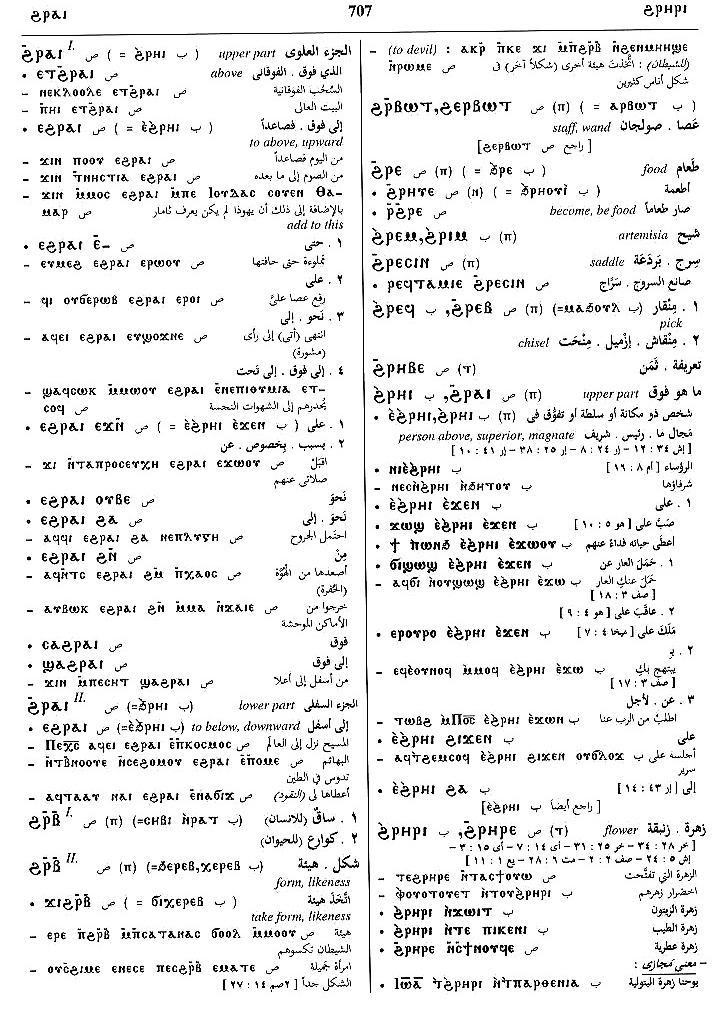 ϩⲣⲁⲓ 707 ϩⲣⲏⲣⲓ
ϩⲣⲁⲓ I. ص ( = ϩⲣⲏⲓ ب ) upper part الجزء العلوى
• ⲉⲧϩⲣⲁⲓ ص above الذي فوق . الفوقانى
– ⲛⲉⲕⲗⲟⲟⲗⲉ ⲉⲧϩⲣⲁⲓ ص السُحُب الفوقانية
– ⲡⲏⲓ ⲉⲧϩⲣⲁⲓ ص البيت العالى
• ⲉϩⲣⲁⲓ ص ( = ⲉ̀ϩⲣⲏⲓ ب ) إلى فوق . فصاعداً
to above, upward
– ϫⲓⲛ ⲡⲟⲟⲩ ⲉϩⲣⲁⲓ ص من اليوم فصاعداً
– ϫⲓⲛ ⲧⲛⲏⲥⲧⲓⲁ ⲉϩⲣⲁⲓ ص من الصوم إلى ما بعده
– ϫⲓⲛ ⲙⲙⲟⲥ ⲉϩⲣⲁⲓ ⲙⲡⲉ ⲓⲟⲩⲇⲁⲥ ⲥⲟⲩⲉⲛ ⲑⲁ-
ⲙⲁⲣ ص بالإضافة إلى ذلك أن يهوذا لم يكن يعرف ثامار
add to this
• ⲉϩⲣⲁⲓ ⲉ̄– ص ١ . حتى
– ⲉⲩⲙⲉϩ ⲉϩⲣⲁⲓ ⲉⲣⲱⲟⲩ ص مملوءة حتى حافتها
٢ . على
– ϥⲓ ⲟⲩϭⲉⲣⲱⲃ ⲉϩⲣⲁⲓ ⲉⲣⲟⲓ ص رفع عصا علىَّ
٣ . نحو . إلى
– ⲁϥⲉⲓ ⲉϩⲣⲁⲓ ⲉⲩϣⲟϫⲛⲉ ص انتهى (أتى) إلى رأى
(مشورة)
٤ . إلى فوق . إلى تحت
– ϣⲁϥⲥⲱⲕ ⲙⲙⲱⲟⲩ ⲉϩⲣⲁⲓ ⲉⲛⲉⲡⲓⲑⲩⲙⲓⲁ ⲉⲧ-
ⲥⲟϥ ص يحدرهم إلى الشهوات النجسة
• ⲉϩⲣⲁⲓ ⲉϫⲛ ص ( = ⲉ̀ϩⲣⲏⲓ ⲉ̀ϫⲉⲛ ب ) ١ . على
٢ . بسبب . بخصوص . عن
– ϫⲓ ⲛⲧⲁⲡⲣⲟⲥⲉⲩⲭⲏ ⲉϩⲣⲁⲓ ⲉϫⲱⲟⲩ ص اقبَلْ
صلاتى عنهم
• ⲉϩⲣⲁⲓ ⲟⲩⲃⲉ ص نَحْوَ
• ⲉϩⲣⲁⲓ ϩⲁ ص نَحْوَ . إلى
– ⲁϥϥⲓ ⲉϩⲣⲁⲓ ϩⲁ ⲛⲉⲡⲗⲩⲅⲏ ص احتمل الجروح
• ⲉϩⲣⲁⲓ ϩⲛ ص مِنْ
– ⲁϥⲛⲧⲥ ⲉϩⲣⲁⲓ ϩⲙ ⲡⲭⲁⲟⲥ ص أصعدها من الهُوَّة
(الحُفرة)
– ⲁⲩⲃⲱⲕ ⲉϩⲣⲁⲓ ϩⲛ ⲙⲙⲁ ⲛϫⲁⲓⲉ ص خرجوا من
الأماكن الموحشة
• ⲥⲁϩⲣⲁⲓ ص فوق
• ϣⲁϩⲣⲁⲓ ص إلى فوق
– ϫⲓⲛ ⲙⲡⲉⲥⲏⲧ ϣⲁϩⲣⲁⲓ ص من أسفل إلى أعلا
ϩⲣⲁⲓ II. ص (=ϧⲣⲏⲓ ب) lower part الجزء السفلى
• ⲉϩⲣⲁⲓ ص (=ⲉ̀ϧⲣⲏⲓ ب) to below, downward إلى أسفل
– ⲡⲉⲭⲥ ⲁϥⲉⲓ ⲉϩⲣⲁⲓ ⲉⲡⲕⲟⲥⲙⲟⲥ ص المسيح نزل إلى العالم
– ⲛⲧⲃⲛⲟⲟⲩⲉ ⲛⲥⲉϩⲟⲙⲟⲩ ⲉϩⲣⲁⲓ ⲉⲡⲟⲙⲉ ص البهائم
تدوس في الطين
– ⲁϥⲧⲁⲁⲩ ⲛⲁⲓ ⲉϩⲣⲁⲓ ⲉⲛⲁϭⲓϫ ص أعطاها لى (النقود)
ϩⲣⲃ I. ص (ⲡ) (=ⲥⲏⲃⲓ ⲛⲣⲁⲧ ب) ١ . ساقٌ (للانسان)
٢ . كوارع (للحيوان)
ϩⲣⲃ II. ص (ⲡ) (=ϧⲉⲣⲉⲃ,ⲭⲉⲣⲉⲃ ب) شكل . هيئة
form, likeness
• ϫⲓϩⲣⲃ ص ( = ϭⲓⲭⲉⲣⲉⲃ ب ) اتَّخَذَ هيئة
take form, likeness
– ⲉⲣⲉ ⲡϩⲣⲃ ⲙⲡⲥⲁⲧⲁⲛⲁⲥ ϭⲟⲟⲗ ⲙⲙⲟⲟⲩ ص هيئة
الشيطان تكسوهم
– ⲟⲩⲥϩⲓⲙⲉ ⲉⲛⲉⲥⲉ ⲡⲉⲥϩⲣⲃ ⲉⲙⲁⲧⲉ ص امرأة جميلة
الشكل جداً [ ٢صم ١٤ : ٢٧ ]
– (to devil) : ⲁⲕⲣ ⲡⲕⲉ ϫⲓ ⲙⲡϩⲣⲃ ⲛϩⲉⲛⲙⲏⲏϣⲉ
ⲛⲣⲱⲙⲉ ص (للشيطان) : اتَّخذتَ هيئة أخرى (شكلاً آخر) فى
شكل أناس كثيرين
ϩⲣⲃⲱⲧ,ϩⲉⲣⲃⲱⲧ ص (ⲡ) ( = ⲁⲣⲃⲱⲧ ب )
staff, wand عَصَا . صولجان
[ راجع ص ϩⲉⲣⲃⲱⲧ]
ϩⲣⲉ ص (ⲡ) ( = ϧⲣⲉ ب ) food طَعام
• ϩⲣⲏⲩⲉ ص (ⲛ) ( = ϧⲣⲏⲟⲩⲓ̀ ب ) أطعمة
• ⲣϩⲣⲉ ص become, be food صار طعاماً
ϩⲣⲉⲙ,ϩⲣⲓⲙ ب (ⲡ) artemisia شيح
ϩⲣⲉⲥⲓⲛ ص (ⲡ) saddle سِرج . بَردَعَة
• ⲣⲉϥⲧⲁⲙⲓⲉ ϩⲣⲉⲥⲓⲛ ص صانع السروج . سرَّاج
ϩⲣⲉϥ ب ,ϩⲣⲉⲃ ص (ⲡ) (=ⲙⲁϭⲟⲩⲗ ب) ١ . مِنْقار
pick
chisel ٢ . مِنْقاش . إزميل . مِنْحَت
ϩⲣⲏⲃⲉ ص (ⲧ) تعريفة . ثَمَن
ϩⲣⲏⲓ ب ,ϩⲣⲁⲓ ص (ⲡ) upper part ما هو فوق
• ⲉ̀ϩⲣⲏⲓ,ϩⲣⲏⲓ ب (ⲡ) شخص ذو مكانة أو سلطة أو تفوُّق فى
person above, superior, magnate مَجال ما . رئيس . شريف
[ إش ٣٤ : ١٢ – إر ٢٤ : ٨ – إر ٢٥ : ٣٨ – إر ٤١ : ١٠ ]
• ⲛⲓⲉ̀ϩⲣⲏⲓ ب الرؤساء [ أم ٨ : ١٦ ]
– ⲛⲉⲥⲛⲉ̀ϩⲣⲏⲓ ⲛϧⲏⲧⲟⲩ ب شرفاؤها
• ⲉ̀ϩⲣⲏⲓ ⲉ̀ϫⲉⲛ ب ١ . على
• ϫⲱϣ ⲉ̀ϩⲣⲏⲓ ⲉ̀ϫⲉⲛ ب صَبَّ على [ هو ٥ : ١٠ ]
• ϯ ⲡⲱⲛϧ ⲉ̀ϩⲣⲏⲓ ⲉ̀ϫⲱⲟⲩ ب أعطى حياته فداءً عنهم
• ϭⲓϣⲱϣ ⲉ̀ϩⲣⲏⲓ ⲉ̀ϫⲉⲛ ب ١ . حَمَلَ العار عن
– ⲁϥϭⲓ ⲛⲟⲩϣⲱϣ ⲉ̀ϩⲣⲏⲓ ⲉ̀ϫⲱ ب حَمَلَ عنكِ العار
[ صف ٣ : ١٨ ]
٢ . عاقَبَ على [ هو ٤ : ٩ ]
• ⲉⲣⲟⲩⲣⲟ ⲉ̀ϩⲣⲏⲓ ⲉ̀ϫⲉⲛ ب مَلَكَ على [ ميخا ٤ : ٧ ]
٢ . بـ
– ⲉϥⲉ̀ⲟⲩⲛⲟϥ ⲙⲙⲟϥ ⲉ̀ϩⲣⲏⲓ ⲉ̀ϫⲱ ب يبتهج بكِ
[ صف ٣ : ١٧ ]
٣ . عن . لأجل
– ⲧⲱⲃϩ ⲙⲠⲟ̅ⲥ̅ ⲉ̀ϩⲣⲏⲓ ⲉ̀ϫⲱⲛ ب اطلبْ من الرب عنا
• ⲉ̀ϩⲣⲏⲓ ϩⲓϫⲉⲛ ب على
– ⲁϥⲧϩⲉⲙⲥⲟϥ ⲉ̀ϩⲣⲏⲓ ϩⲓϫⲉⲛ ⲟⲩϭⲗⲟϫ ب أجلسه على
سرير
• ⲉ̀ϩⲣⲏⲓ ϩⲁ ب إلى [ إر ٤٣ : ١٤ ]
[ راجع أيضاً ب ⲉ̀ϩⲣⲏⲓ]
ϩⲣⲏⲣⲓ ب ,ϩⲣⲏⲣⲉ ص (ⲧ) flower زهرة . زنبقة
[ خر ٢٨ : ٣٤ – خر ٢٥ : ٣١ – أى ١٤ : ٧ – أى ١٥ : ٣ –
إش ٥ : ٢٤ – صف ٢ : ٢ – مت ٦ : ٢٨ – يع ١ : ١١ ]
– ⲧⲉϩⲣⲏⲣⲉ ⲛⲧⲁⲥϯⲟⲩⲱ ص الزهرة التى تفتَّحت
– ⲫⲟⲩⲟⲧⲟⲩⲉⲧ ⲛⲧⲟⲩϩⲣⲏⲣⲓ ب اخضرار زهرهم
• ϩⲣⲏⲣⲓ ⲛϫⲱⲓⲧ ب زهرة الزيتون
• ϩⲣⲏⲣⲓ ⲛⲧⲉ ⲡⲓⲕⲉⲛⲓ ب زهرة الطيب
• ϩⲣⲏⲣⲉ ⲛⲥϯⲛⲟⲩϥⲉ ص زهرة عطرية
– معنى مجازى :
– ⲓⲱⲁ ⲧϩⲣⲏⲣⲓ ⲛⲧⲡⲁⲣⲑⲉⲛⲓⲁ ب يوحنا زهرة البتولية